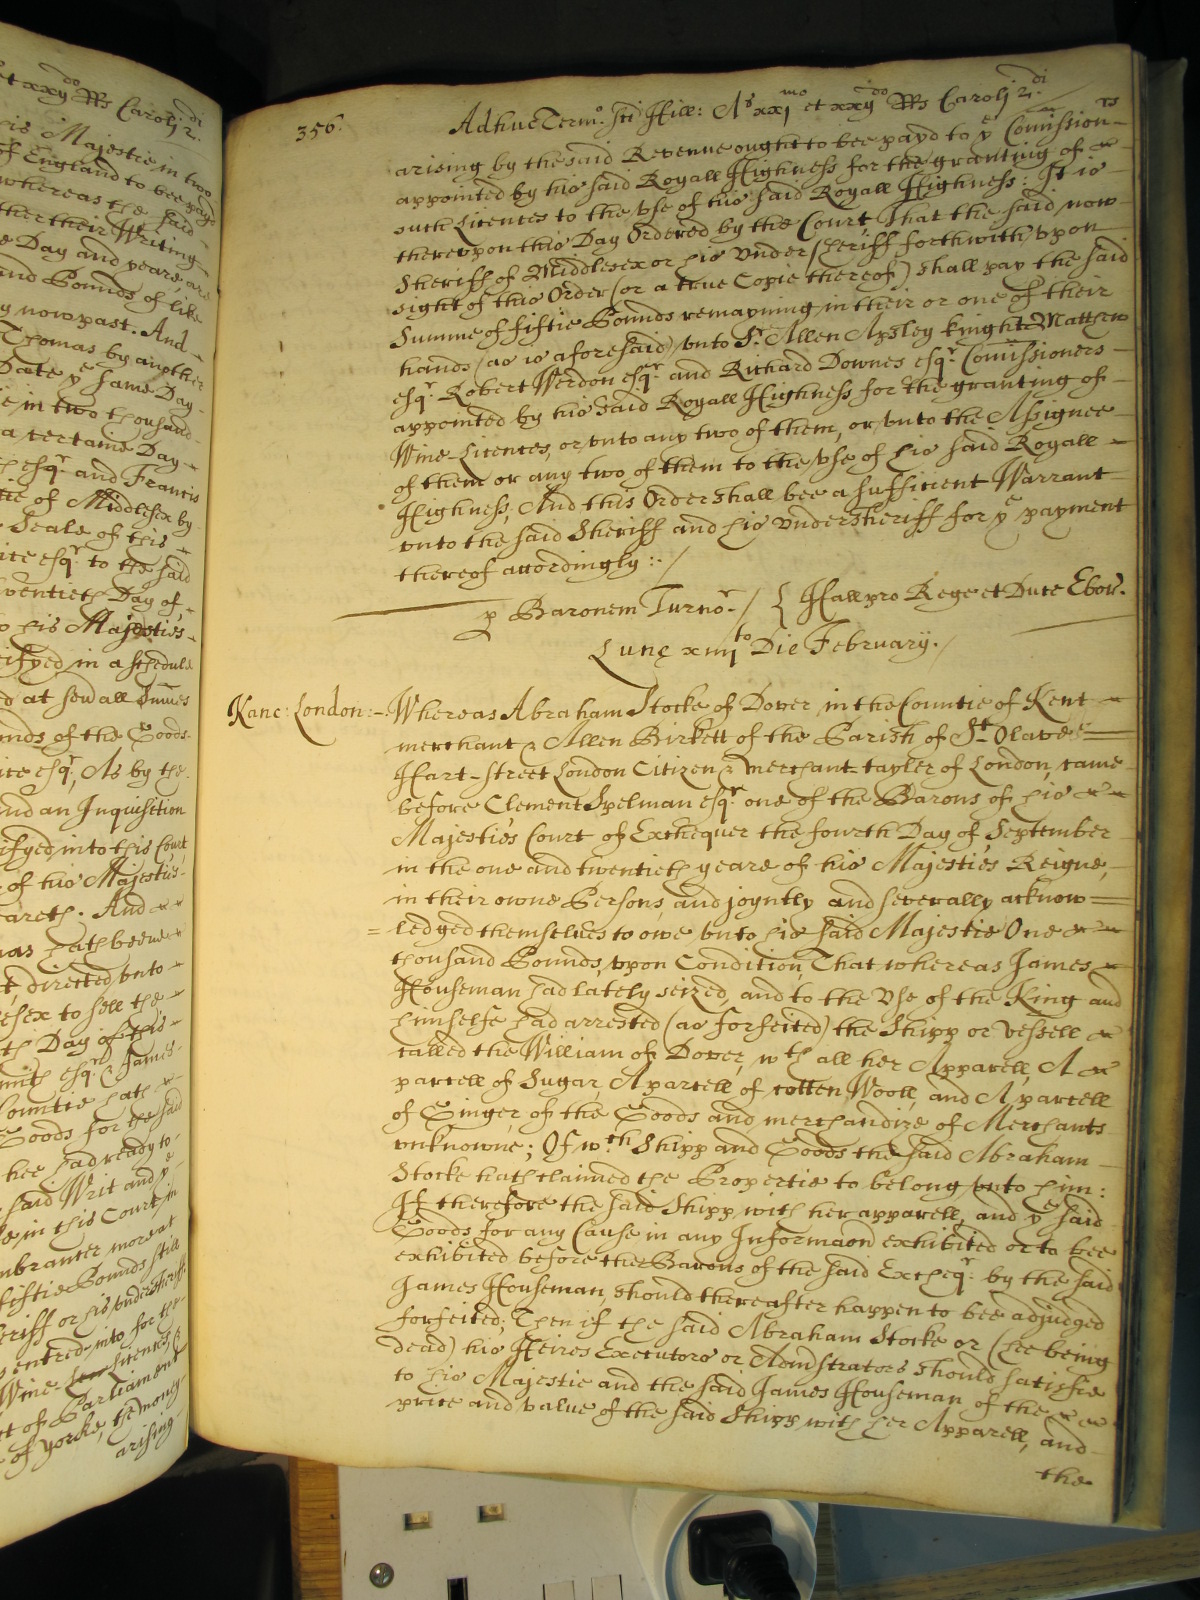 et xxij do RRs Caroli 2. di
his Majestie in two
of England to bee payd
whereas the said
ther their Writing
e Day and yeare are
and Pounds of like
y now past. And
Thomas by another
Date ye same Day
e in two thousand
a certaine Day
esqr. and Francis
tie of Middlesex by
Seale of this
ice esqr. to the said
wentieth Day of
o his Majesties
ifyed in a schedule
d at sevrall Sumes
unds of the Goods
ice esqr, As by the
and an Inquisition
ifyed into this Court
of his Majesties
areth. And
was hath beene
t directed unto
esex to sell the
th Day of this
mith esqr. & James
Countie hath
Goods for the said
hee had ready to
said Writ and ye
le in this Court in
mbrancer moreat
fiftie Pounds still
eriff or his undersheriff
s entred into for the
Wine Licences &
ct of Parliament
of Yorke, the money
arising
356.
Adhuc Termo. Sti Hill: As xxj mo et xxij do RRs Caroli 2. di
arising by the said Revenue ought to bee payd to ye Comission rs
appointed by his said Royall Highness for the granting of
such Licences to the use of his said Royall Highness: It is
thereupon this Day Ordered by the Court That the said now
Sheriff of Middlesex or his under Sheriff forthwith upon
sight of this Order (or a true Copie thereof) shall pay the said
Summe of fiftie Pounds remayning in their or one of their
hands (as is aforesaid) unto Sr. Allen Apsley knight Matthew
esqr. Robert Werdon esqr. and Richard Downes esqr. Comissioners
appointed by his said Royall Highness for the granting of
Wine-Licences, or unto any two of them, or unto the Assignee
of them or any two of them to the use of his said Royall
Highness, And this Order shall bee a sufficient Warrant
unto the said Sheriff and his undersheriff for ye payment
thereof accordingly :./
p Baronem Turnor./ { Hall pro Rege et Duce Ebor.
Lunę xiiij to Die February./
Kanc: London:- Whereas Abraham Stocke of Dover in the Countie of Kent
merchant & Allen Birkett of the Parish of St. Olaves
Hart-street London Citizen & merchant-tayler of London, came
before Clement Spelman esqr. one of the Barons of his
Majesties Court of Exchequer the fourth Day of September
in the one and twentieth yeare of his Majesties Reigne,
in their owne Persons, and joyntly and severally acknow=
=ledged themselves to owe unto his said Majestie One
thousand Pounds, upon Condition, That whereas James
Houseman had lately seized, and to the Use of the King and
himselfe had arrested (as forfeited) the Shipp or vessell
called the William of Dover, wth all her Apparell, A
parcell of Sugar, A parcell of cotten Wooll, and A parcell
of Ginger, of the Goods and merchandize of Merchants
unknowne; Of wch. Shipp and Goods the said Abraham
Stocke hath claimed the Propertie to belong unto him:
If therefore the said Shipp with her apparell, and ye said
Goods for any Cause in any Informaon exhibited or to bee
exhibited before the Barons of the said Excheqr. by the said
James Houseman, should thereafter happen to bee adjudged
forfeited; Then if the said Abraham Stocke or (hee being
dead) his Heires Executors or Administrators should satisfie
to his Majestie and the said James Houseman of the
price and value of the said Shipp with her Apparell, and
the